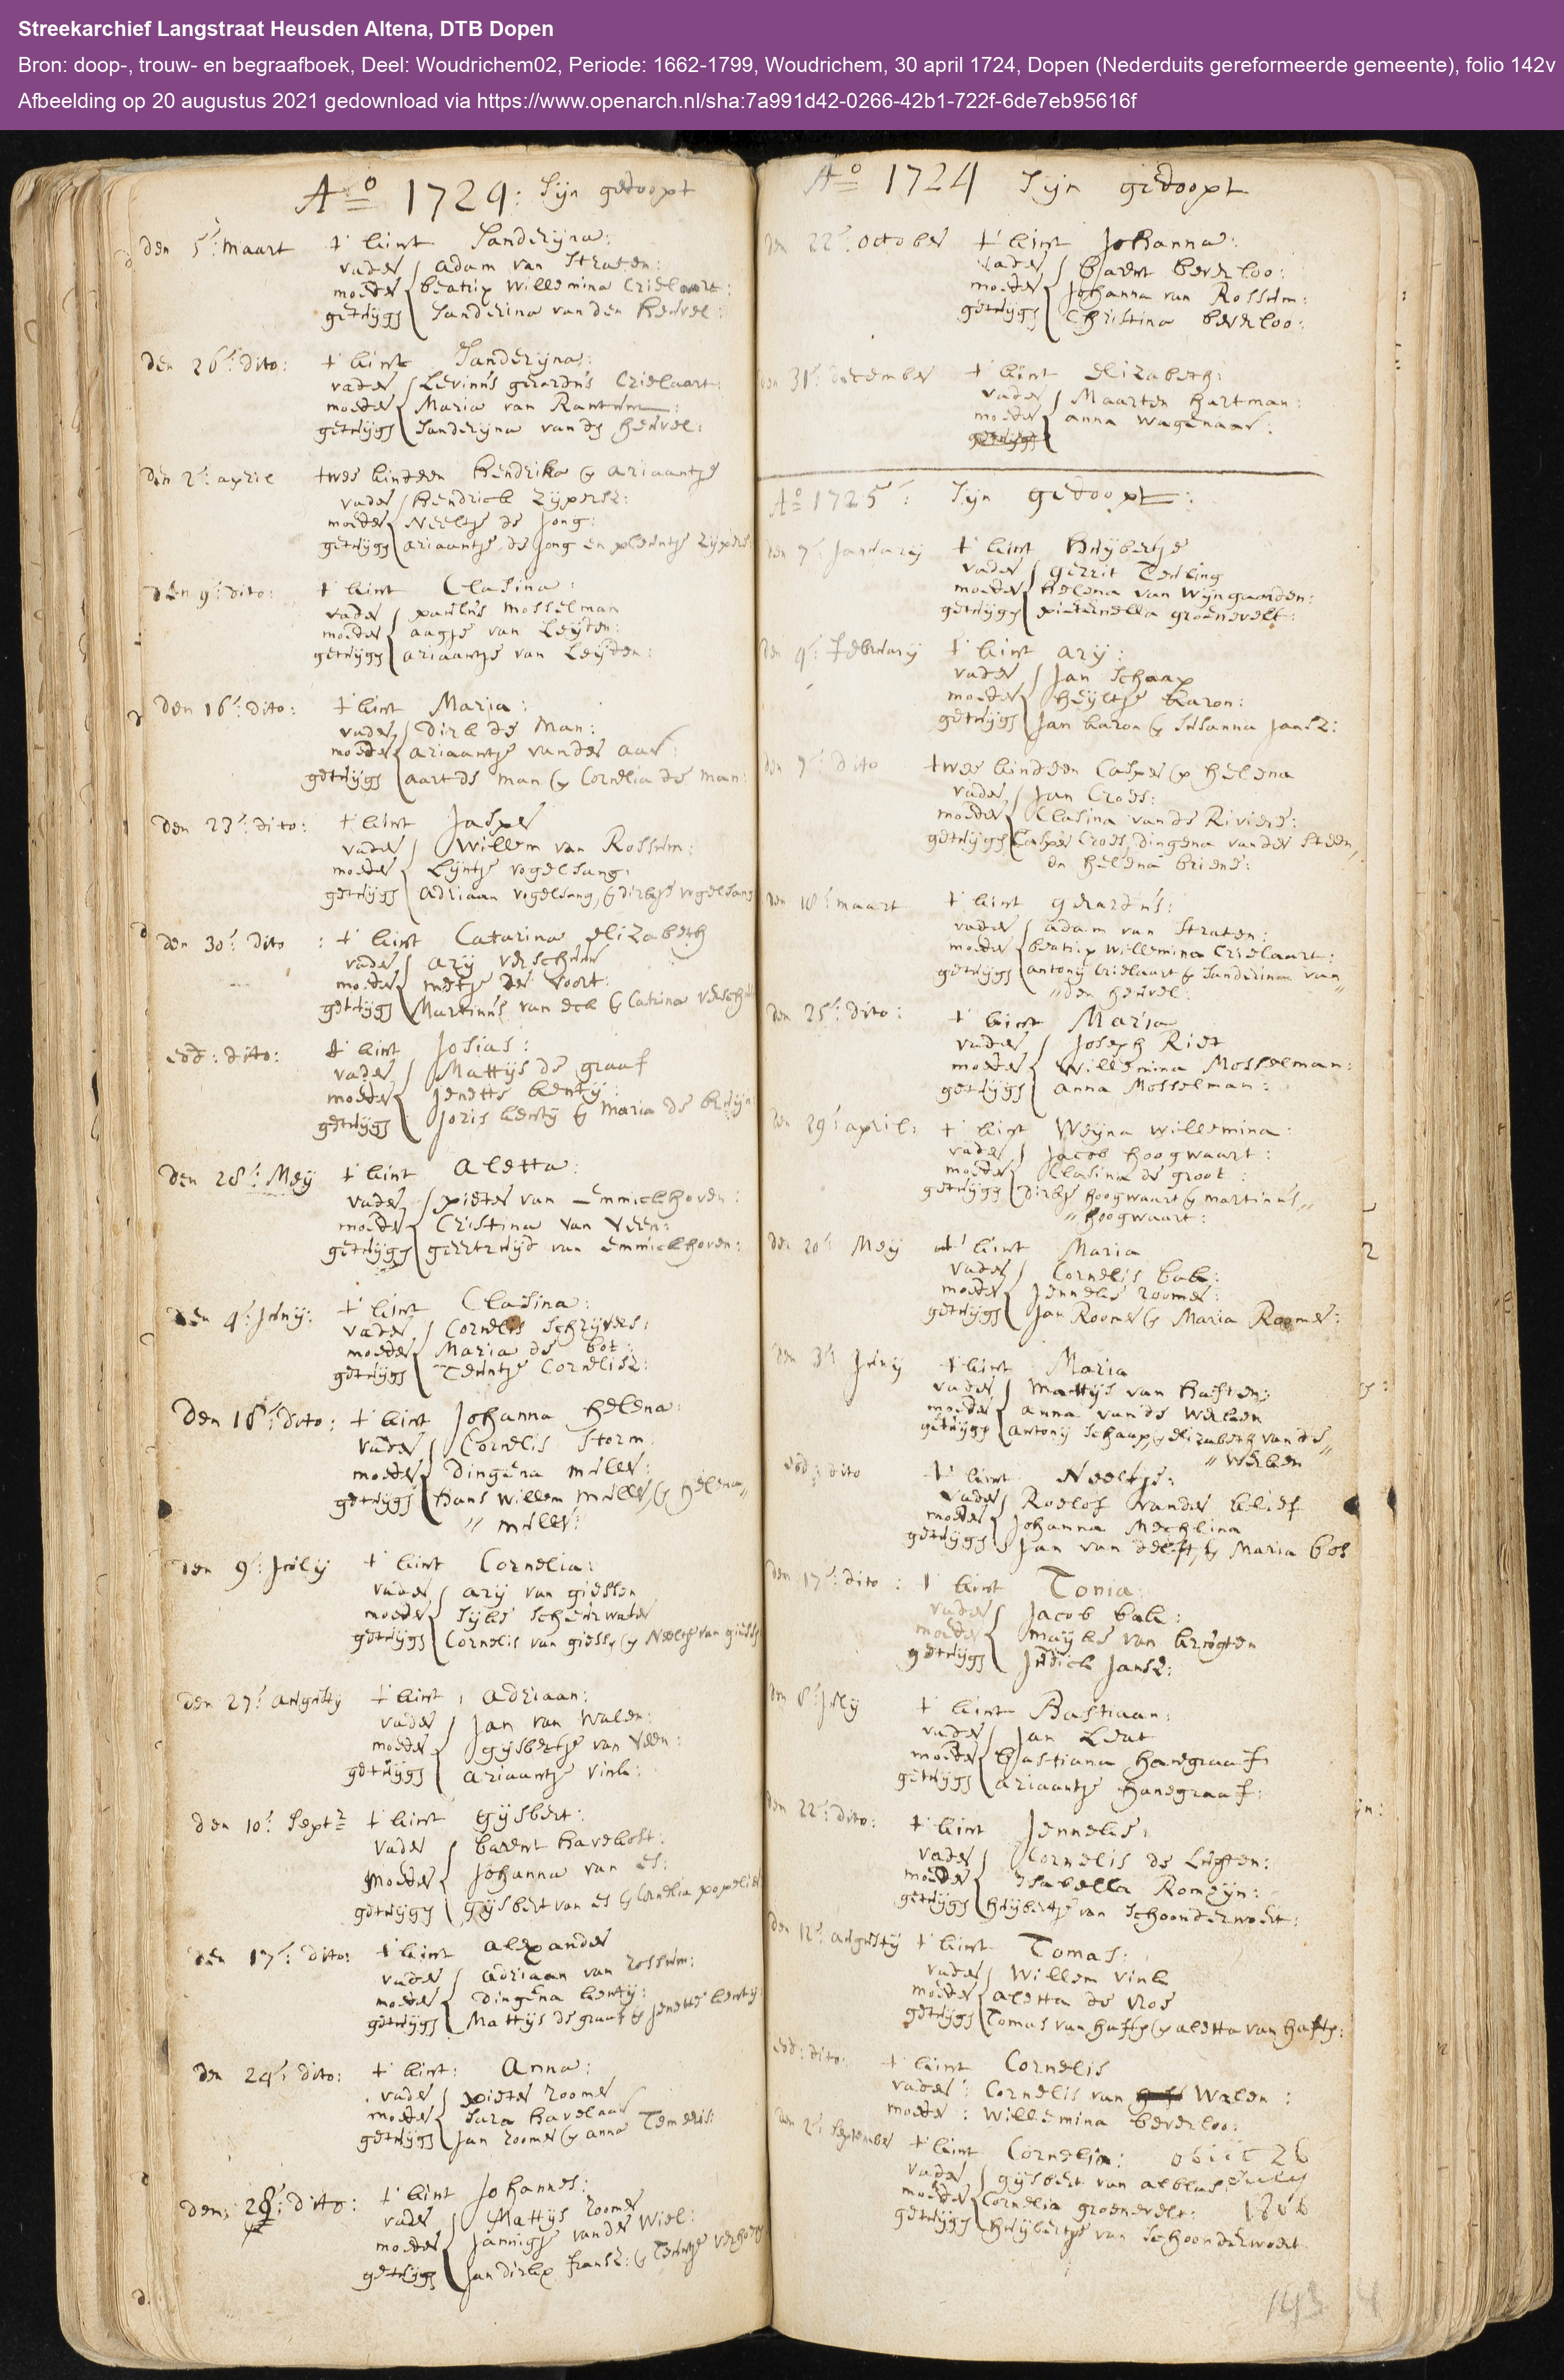 Streekarchief Langstraat Heusden Altena, DTB Dopen
Bron: doop-, trouw- en begraafboek, Deel: Woudrichem02, Periode: 1662-1799, Woudrichem, 30 april 1724, Dopen (Nederduits gereformeerde gemeente), folio 142v
Afbeelding op 20 augustus 2021 gedownload via https://www.openarch.nl/sha:7a991d42-0266-42b1-722f-6de7eb95616f
Ao 1724: Sijn gedoopt
den 5: maart t' kint Sanderijna:
vader adam van Straten:
moeder beatrix willemina Crielaart:
getuijgs Sanderina van den heuvel:
den 26: dito: t' kint Sanderijna:
vader Levinus gerardus Crielaart:
moeder Maria van Rantum:
getuijgs Sanderijna vande heuvel:
den 2: april twee kinderen hendrika & ariaantje
vader hendrick Zijpersz:
moeder Neeltje de Jong:
getuijgs ariaantje de Jong en pleuntje Zijpers
den 9: dito: t kint Clasina:
vader paulus mosselman
moeder aagje van Leijden:
getuijgs ariaantje van Leijden:
den 16: dito: t kint Maria:
vader dirk de man:
moeder ariaantje vander aar:
getuijgs aart de man & Cornelia de man:
den 23: dito: t kint Jasper
vader Willem van Rossum:
moeder Lijntje vogelsang:
getuijgs adriaan vogelsang, & dirkje vogelsang
den 30: dito: t' kint Catarina elizabeth
vader arij verschuur
moeder metje der voort:
getuijgs Martinus van eck & Catrina
eod: dito: t' kint Josias:
vader Mattijs de graaf
moeder Jenette kentij:
getuijgs Joris kentij & maria de bruijn
den 28: Meij t kint aletta:
vader pieter van Emmickhoven:
moeder Cristina van Veen:
getuijgs geertruijd van emmickhoven:
den 4: Junij: t kint Clasina:
vader Cornelis Schrijvers:
moeder Maria de bot:
getuijgs Teuntje Cornelisz:
den 18: dito: t kint Johanna helena:
vader Cornelis Storm
moeder dingena muller:
getuijgs hans willem muller & helena
" muller:
den 9: Julij t kint Cornelia:
vader arij van giessen
moeder Sijke Scheurwater
getuijgs Cornelis van giessen & Neeltje van giessen
den 27: augusty t kint adriaan:
vader Jan van Walen:
moeder gijsbertje van Veen:
getuijgs ariaantje vink:
den 10: Sept: t kint Gijsbert:
vader barent havekost:
moeder Johanna van es:
getuijgs Gijsbert van es & Cornelia
den 17: dito: t kint alexander
vader adriaan van rossum:
moeder dingena kentij:
getuijgs Mattijs de graaf & Jenette kentij:
den 24: dito: t kint: Anna:
vader pieter roomer
moeder Sara havelaar
getuijgs Jan roomer & anna Temeris:
den: 28: dito: t kint Johannes:
vader Mattijs roomer
moeder Jannigje vander Wiel:
getuijgs Jan dirkx fransz: & Teuntje
Ao 1724 Sijn gedoopt
den 22: october t' kint Johanna:
vader barent beverloo:
moeder Johanna van Rossum:
getuijgs Christina beverloo:
den 31: december t kint elizabeth:
vader Maarten hartman:
moeder anna wagenaar:
getuijgs
Ao 1725: Sijn gedoopt:
den 7: Januarij t kint huijbertje
vader gerrit Teuling
moeder helena van Wijngaarden:
getuijgs pieternella groenevelt:
den 4: februarij t kint arij:
vader Jan Schaap
moeder heijltje karon:
getuijgs Jan karon & Susanna Jansz:
den 9: dito twee kinderen Casper & helena
vader Jan Croes:
moeder Clasina vande Riviere:
getuijgs Casper Croes, dingena vander Steen,
en helena briene:
den 18: maart t kint gerardus:
vader adam van Straten:
moeder beatrix willemina Crielaart:
getuijgs antonij Crielaart & Sanderina van
" den heuvel:
den 25: dito: t kint Maria
vader Joseph Riet
moeder willemina Mosselman:
getuijgs anna Mosselman:
den 29: april: t kint Weijna willemina:
vader Jacob hoogwaart:
moeder Clasina de groot:
getuijgs dirkje hoogwaart & martinus
" hoogwaart:
den 20: Meij t kint Maria
vader Cornelis bak:
moeder Jenneke roomer:
getuijgs Jan Roomer & Maria Roomer:
den 3: Junij t kint Maria
vader Mattijs van haften:
moeder anna vande Werken
getuijgs antonij Schaap, & elizabeth vande
" Werken
eod: dito t kint Neeltje:
vader Roelof vander klief
moeder Johanna Mechlina
getuijgs Jan van delft, & Maria bos
den 17: dito: t kint Tonia:
vader Jacob bak:
moeder maijke van brugten
getuijgs Judick Jansz:
den 8: July t kint Bastiaan:
vader Jan Leut
moeder bastiana hanegraaf
getuijgs ariaantje hanegraaf:
den 22: dito: t kint Jenneke:
vader Cornelis de Lugten:
moeder Isabella Romeijn:
getuijgs huijbertje van Schoonderwoert:
den 12: augusty t kint Tomas:
vader Willem Vink
moeder aletta de Vroe
getuijgs Tomas van haften & aletta van haften:
eod: dito: t kint Cornelis
vader: Cornelis van Walen:
moeder: willemina beverloo:
den 2: September t kint Cornelia: obiit 26
vader gijsbert van alblas July
moeder Cornelia groenevelt: 1806
getuijgs huijbertje van Schoonderwoert
143